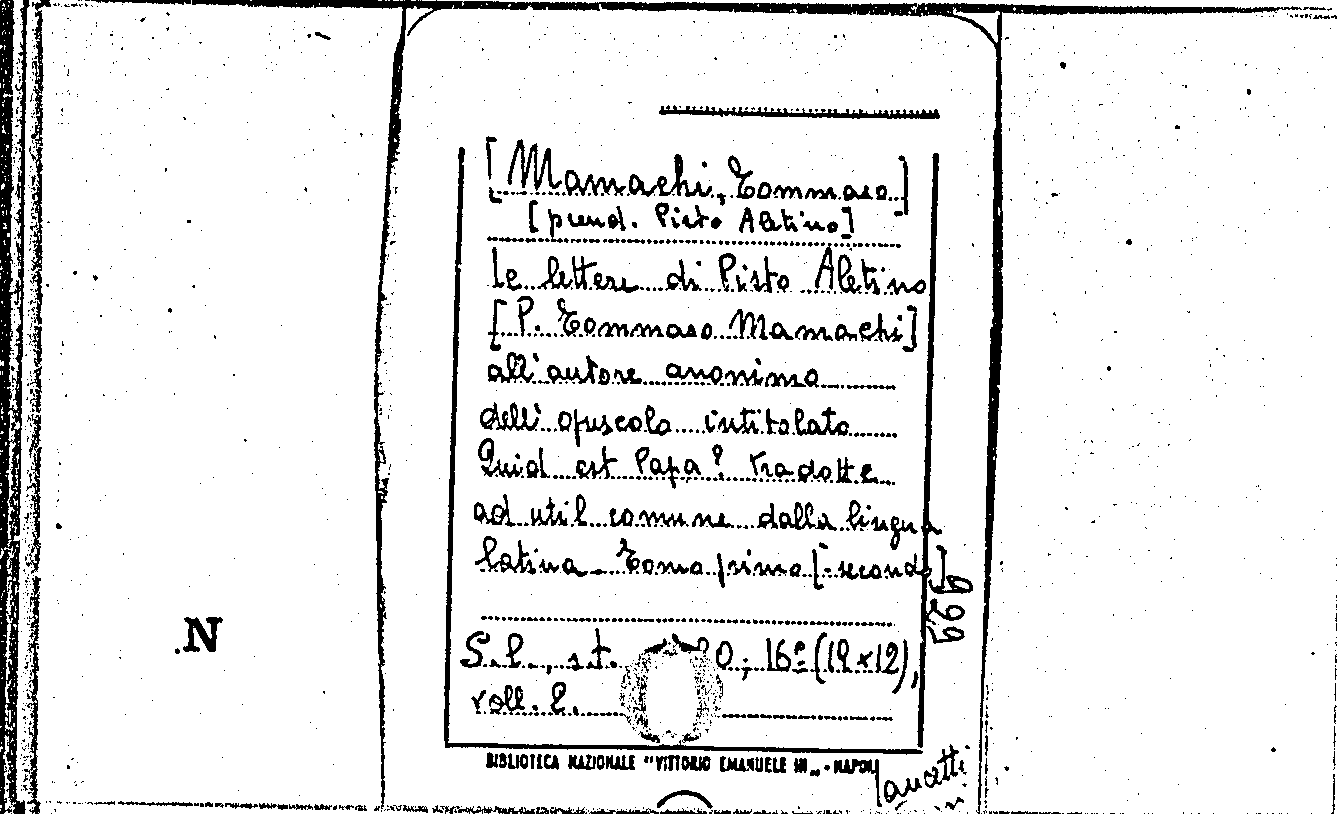 [Mamachi, Tommaso]
[pseud. Pisto Aletino]
Le lettere di Pisto Aletino
[P. Tommaso Mamachi]
all'autore anonimo
dell'opuscolo intitolato
Quid est Papa? tradotte
ad util comune dalla lingua
latina. Tomo primo [-secondo]
929
S.l., s.t. 16º (19x12),
voll. 2.
BIBLIOTECA NAZIONALE "VITTORIO EMANUELE III„ - NAPOLI
N